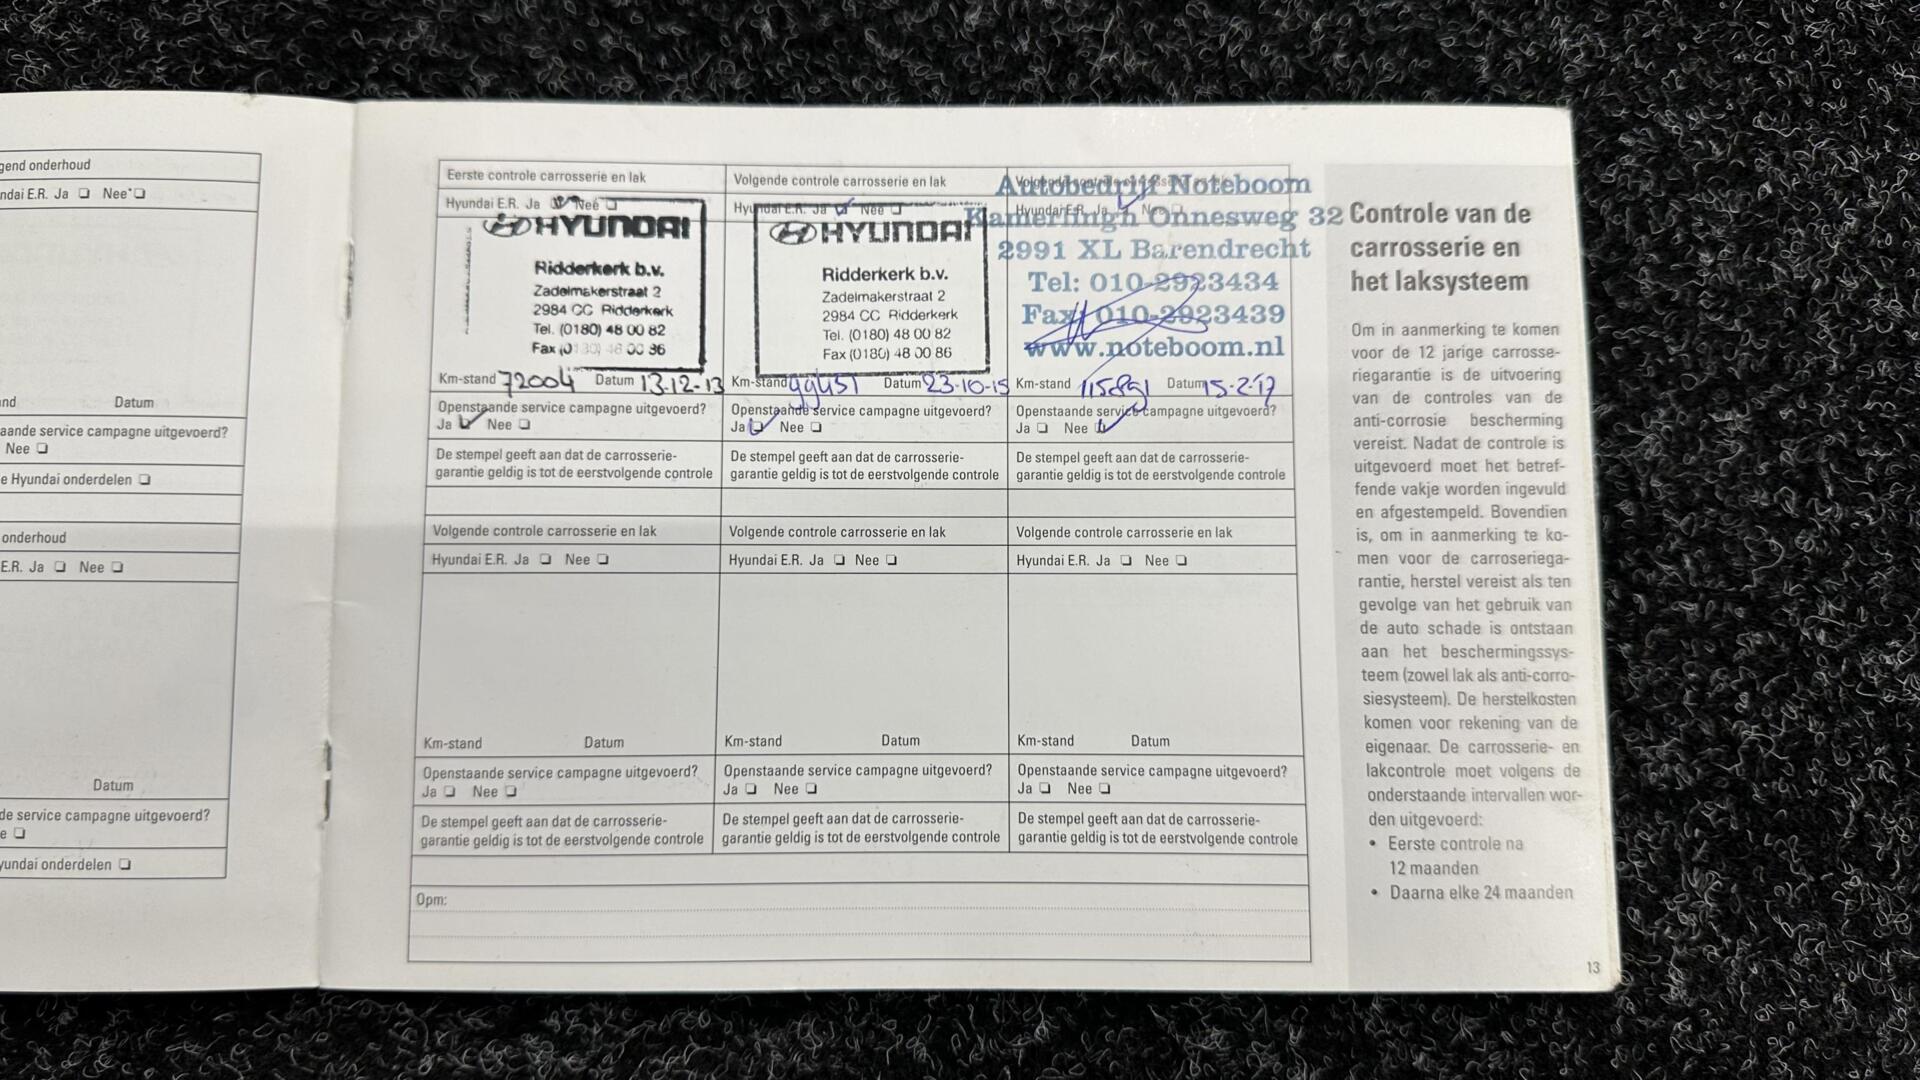 gend onderhoud
ndai E.R. Ja ❏ Nee*❏
nd Datum
aande service campagne uitgevoerd?
Nee ❏
e Hyundai onderdelen ❏
onderhoud
E.R. Ja ❏ Nee ❏
Datum
de service campagne uitgevoerd?
e ❏
yundai onderdelen ❏
Eerste controle carrosserie en lak
Hyundai E.R. Ja Nee ❏
HYUNDAI
Ridderkerk b.v.
Zadelmakerstraat 2
2984 CC Ridderkerk
Tel. (0180) 48 00 82
Fax (0180) 48 00 86
Km-stand 72004 Datum 13-12-13
Openstaande service campagne uitgevoerd?
Ja ❏ Nee ❏
De stempel geeft aan dat de carrosserie-
garantie geldig is tot de eerstvolgende controle
Volgende controle carrosserie en lak
Hyundai E.R. Ja ❏ Nee ❏
HYUNDAI
Ridderkerk b.v.
Zadelmakerstraat 2
2984 CC Ridderkerk
Tel. (0180) 48 00 82
Fax (0180) 48 00 86
Km-stand 99451 Datum 23-10-15
Openstaande service campagne uitgevoerd?
Ja ❏ Nee ❏
De stempel geeft aan dat de carrosserie-
garantie geldig is tot de eerstvolgende controle
Hyundai E.R. Ja Nee ❏
Autobedrijf Noteboom
Kamerlingh Onnesweg 32
2991 XL Barendrecht
Tel: 010-2923434
Fax: 010-2923439
www.noteboom.nl
Km-stand Datum 15-2-17
Openstaande service campagne uitgevoerd?
Ja ❏ Nee ❏
De stempel geeft aan dat de carrosserie-
garantie geldig is tot de eerstvolgende controle
Volgende controle carrosserie en lak
Hyundai E.R. Ja ❏ Nee ❏
Km-stand Datum
Openstaande service campagne uitgevoerd?
Ja ❏ Nee ❏
De stempel geeft aan dat de carrosserie-
garantie geldig is tot de eerstvolgende controle
Volgende controle carrosserie en lak
Hyundai E.R. Ja ❏ Nee ❏
Km-stand Datum
Openstaande service campagne uitgevoerd?
Ja ❏ Nee ❏
De stempel geeft aan dat de carrosserie-
garantie geldig is tot de eerstvolgende controle
Volgende controle carrosserie en lak
Hyundai E.R. Ja ❏ Nee ❏
Km-stand Datum
Openstaande service campagne uitgevoerd?
Ja ❏ Nee ❏
De stempel geeft aan dat de carrosserie-
garantie geldig is tot de eerstvolgende controle
Opm:
Controle van de
carrosserie en
het laksysteem
Om in aanmerking te komen
voor de 12 jarige carrosse-
riegarantie is de uitvoering
van de controles van de
anti-corrosie bescherming
vereist. Nadat de controle is
uitgevoerd moet het betref-
fende vakje worden ingevuld
en afgestempeld. Bovendien
is, om in aanmerking te ko-
men voor de carroseriega-
rantie, herstel vereist als ten
gevolge van het gebruik van
de auto schade is ontstaan
aan het beschermingssys-
teem (zowel lak als anti-corro-
siesysteem). De herstelkosten
komen voor rekening van de
eigenaar. De carrosserie- en
lakcontrole moet volgens de
onderstaande intervallen wor-
den uitgevoerd:
• Eerste controle na
12 maanden
• Daarna elke 24 maanden
13